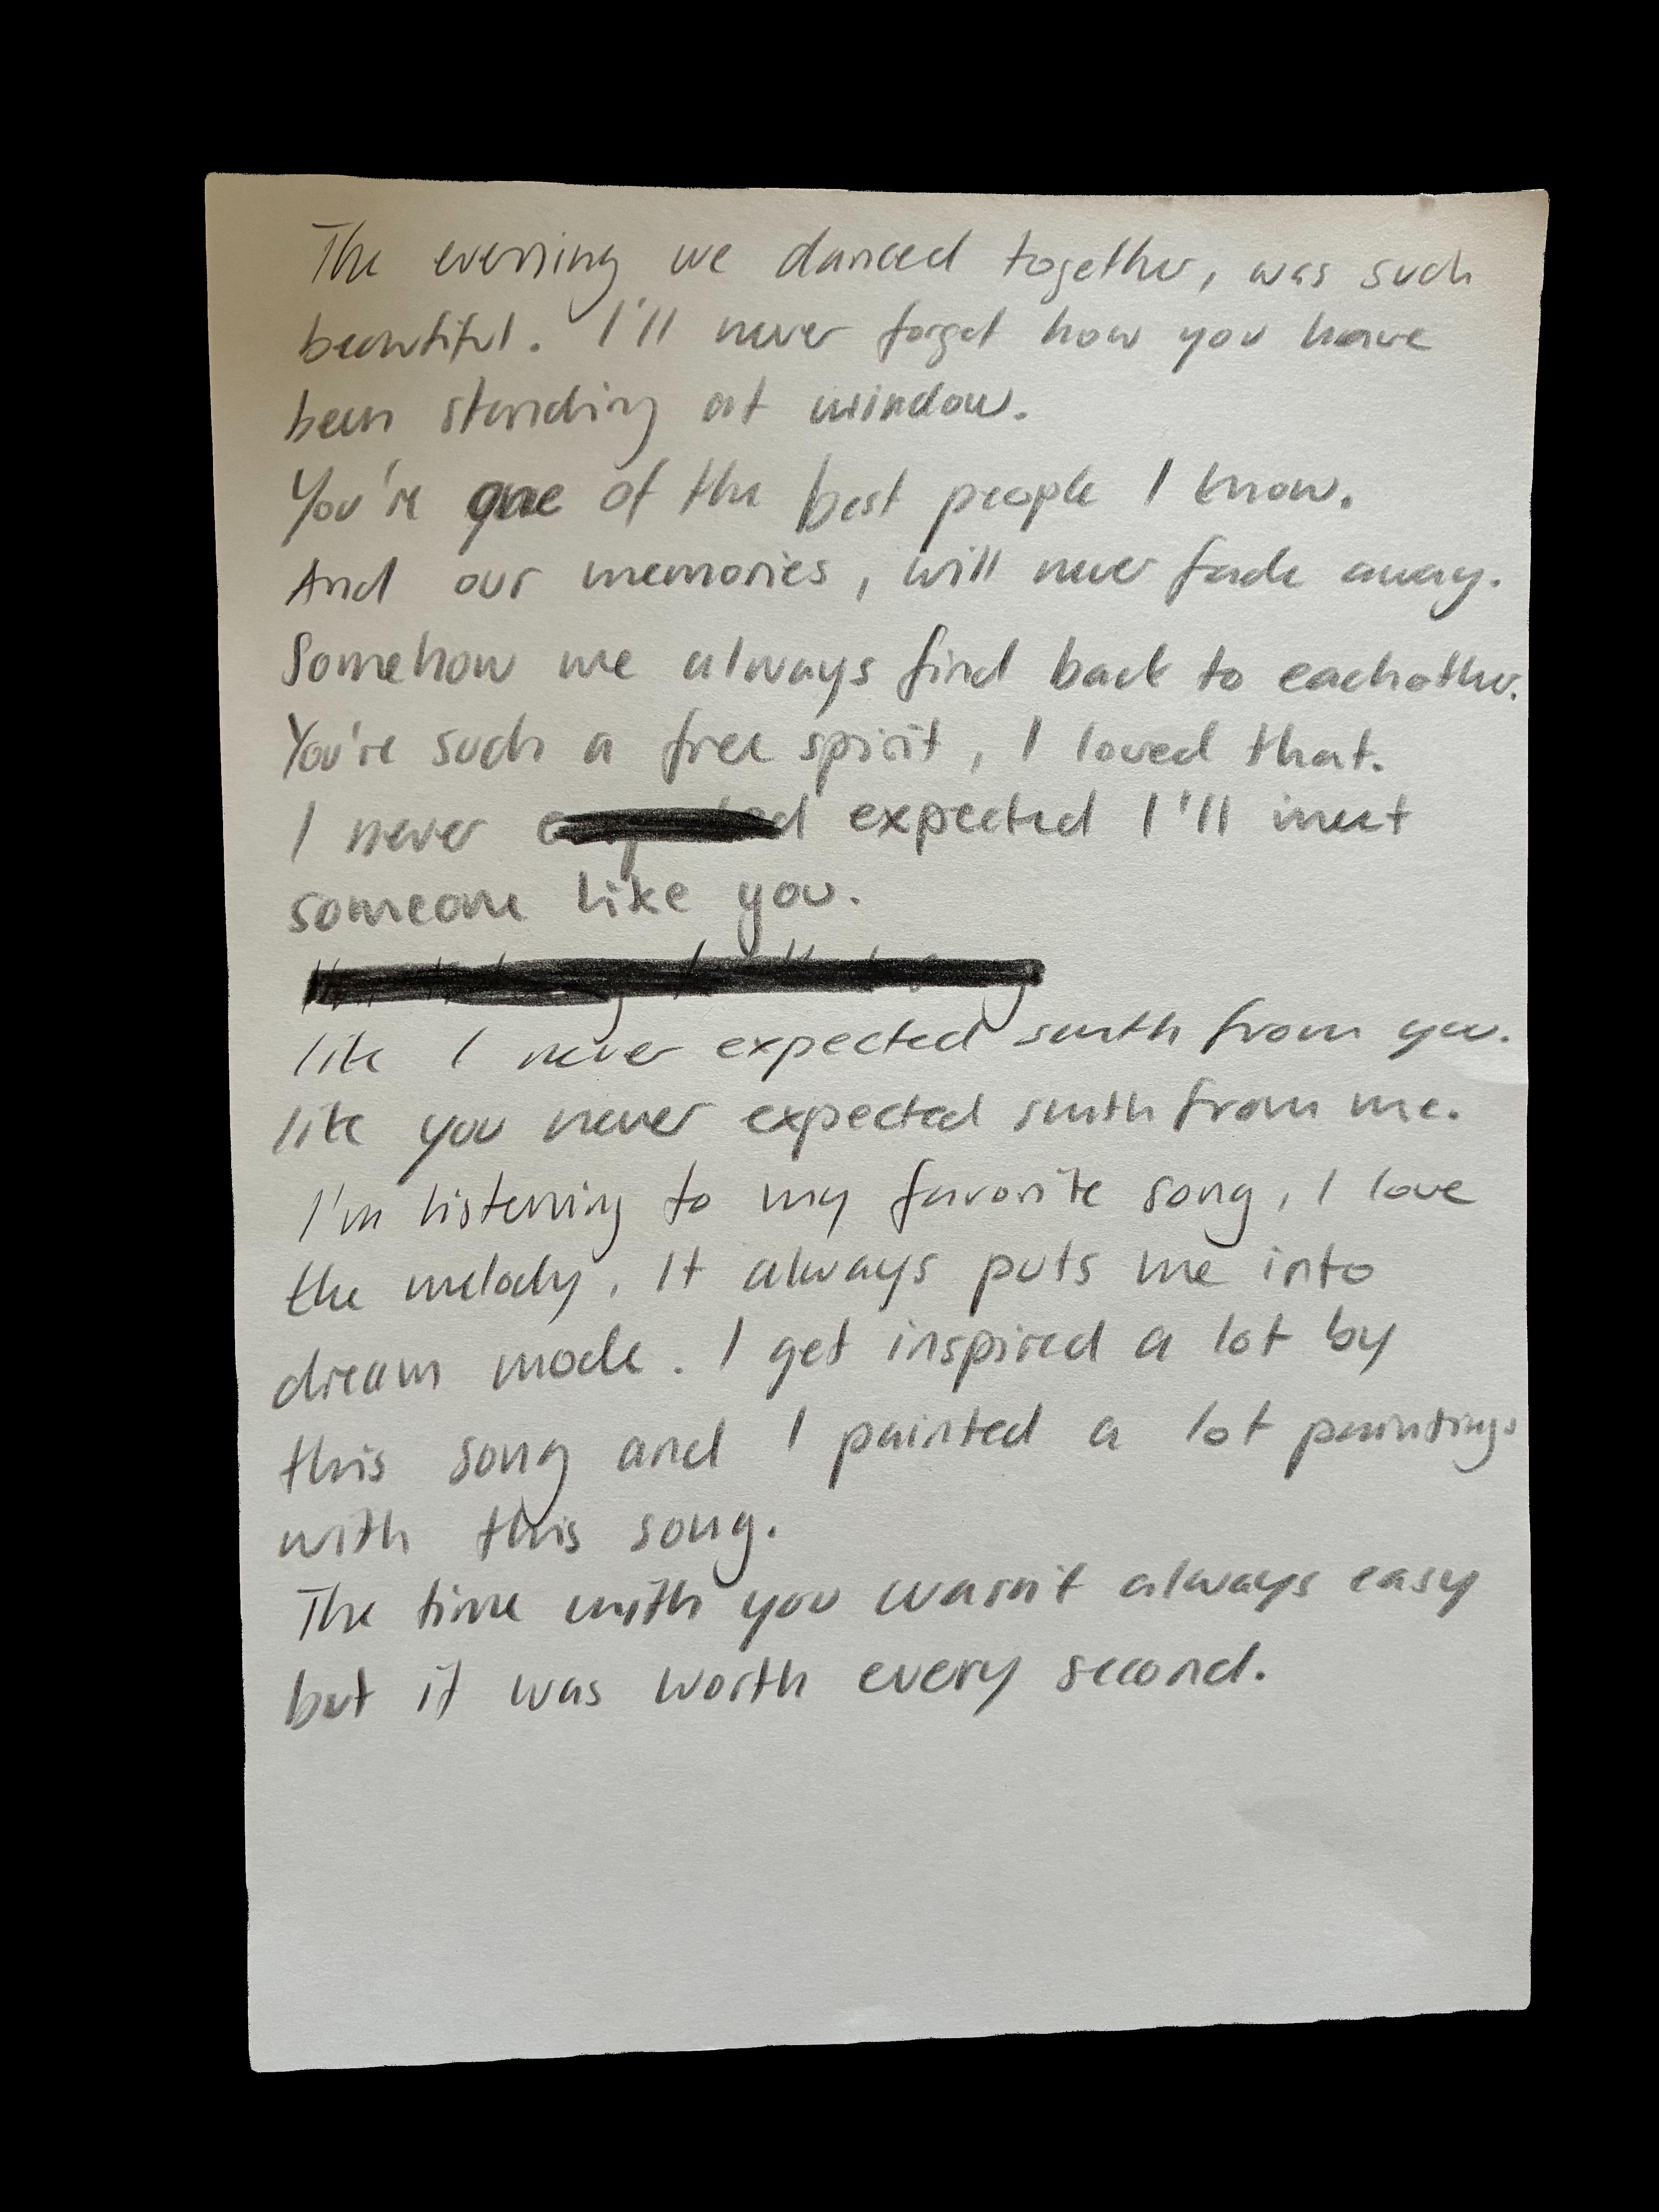 The evening we danced together, was such
beautiful. I'll never forget how you have
been standing at window.
You're one of the best people I know.
And our memories, will never fade away.
Somehow we always find back to eachother.
You're such a free spirit, I loved that.
I never expected I'll meet
someone like you.
like I never expected smth from you.
like you never expected smth from me.
I'm listening to my favorite song, I love
the melody. It always puts me into
dream mode. I get inspired a lot by
this song and I painted a lot paintings
with this song.
The time with you wasn't always easy
but it was worth every second.